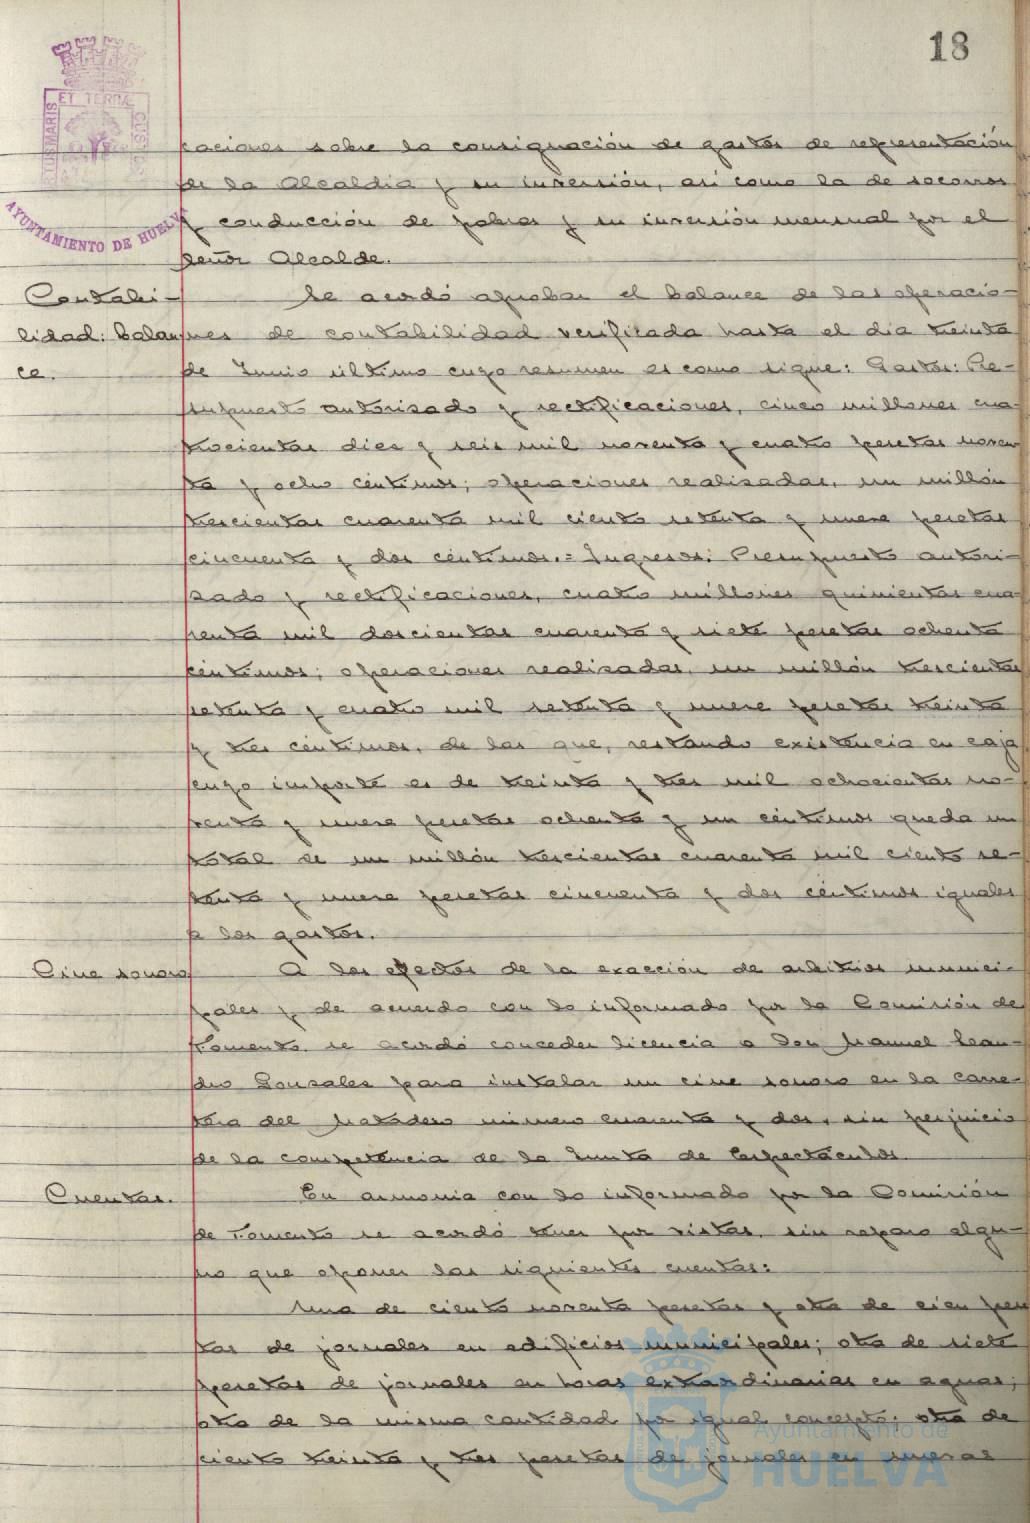 18
ET TERRÆ
CUSTODIA
PORTUS MARIS
AYUNTAMIENTO DE HUELVA
caciones sobre la consignación de gastos de representación
de la Alcaldia y su inversión, asi como la de socorros
y conducción de pobres y su inversión mensual por el
Señor Alcalde.
Contabi-
lidad: balan
ce.
Se acordó aprobar el balance de las operacio-
nes de contabilidad verificada hasta el dia treinta
de Junio último cuyo resumen es como sigue: Gastos: Pre-
supuesto autorisado y rectificaciones, cinco millones cua-
trocientas diez y seis mil noventa y cuatro pesetas noven
ta y ocho céntimos; operaciones realisadas, un millón
trescientas cuarenta mil ciento setenta y nueve pesetas
cincuenta y dos céntimos.= Ingresos: Presupuesto autori-
sado y rectificaciones, cuatro millones quinientas cua-
renta mil doscientas cuarenta y siete pesetas ochenta
céntimos; operaciones realisadas, un millón trescientas
setenta y cuatro mil setenta y nueve pesetas treinta
y tres céntimos, de las que, restando existencia en caja
cuyo importe es de treinta y tres mil ochocientas no-
venta y nueve pesetas ochenta y un céntimos queda un
total de un millón trescientas cuarenta mil ciento se-
tenta y nueve pesetas cincuenta y dos céntimos iguales
a los gastos.
Cine sonoro
A los efectos de la exacción de arbitrios munici-
pales y de acuerdo con lo informado por la Comisión de
Fomento, se acordó conceder licencia a Don Manuel Lean-
dro Gonsales para instalar un cine sonoro en la carre-
tera del Matadero número cuarenta y dos, sin perjuicio
de la competencia de la Junta de Espectáculos.
Cuentas.
En armonia con lo informado por la Comisión
de Fomento se acordó tener por vistas, sin reparo algu-
no que oponer las siguientes cuentas:
Una de ciento noventa pesetas y otra de cien pese
tas de jornales en edificios municipales; otra de siete
pesetas de jornales en horas extraordinarias en aguas;
otra de la misma cantidad por igual concepto; otra de
ciento treinta y tres pesetas de jornales en nuevas
Ayuntamiento de
HUELVA